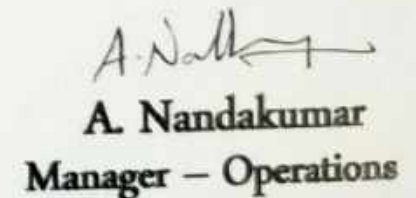 A. Nandakumar
Manager – Operations